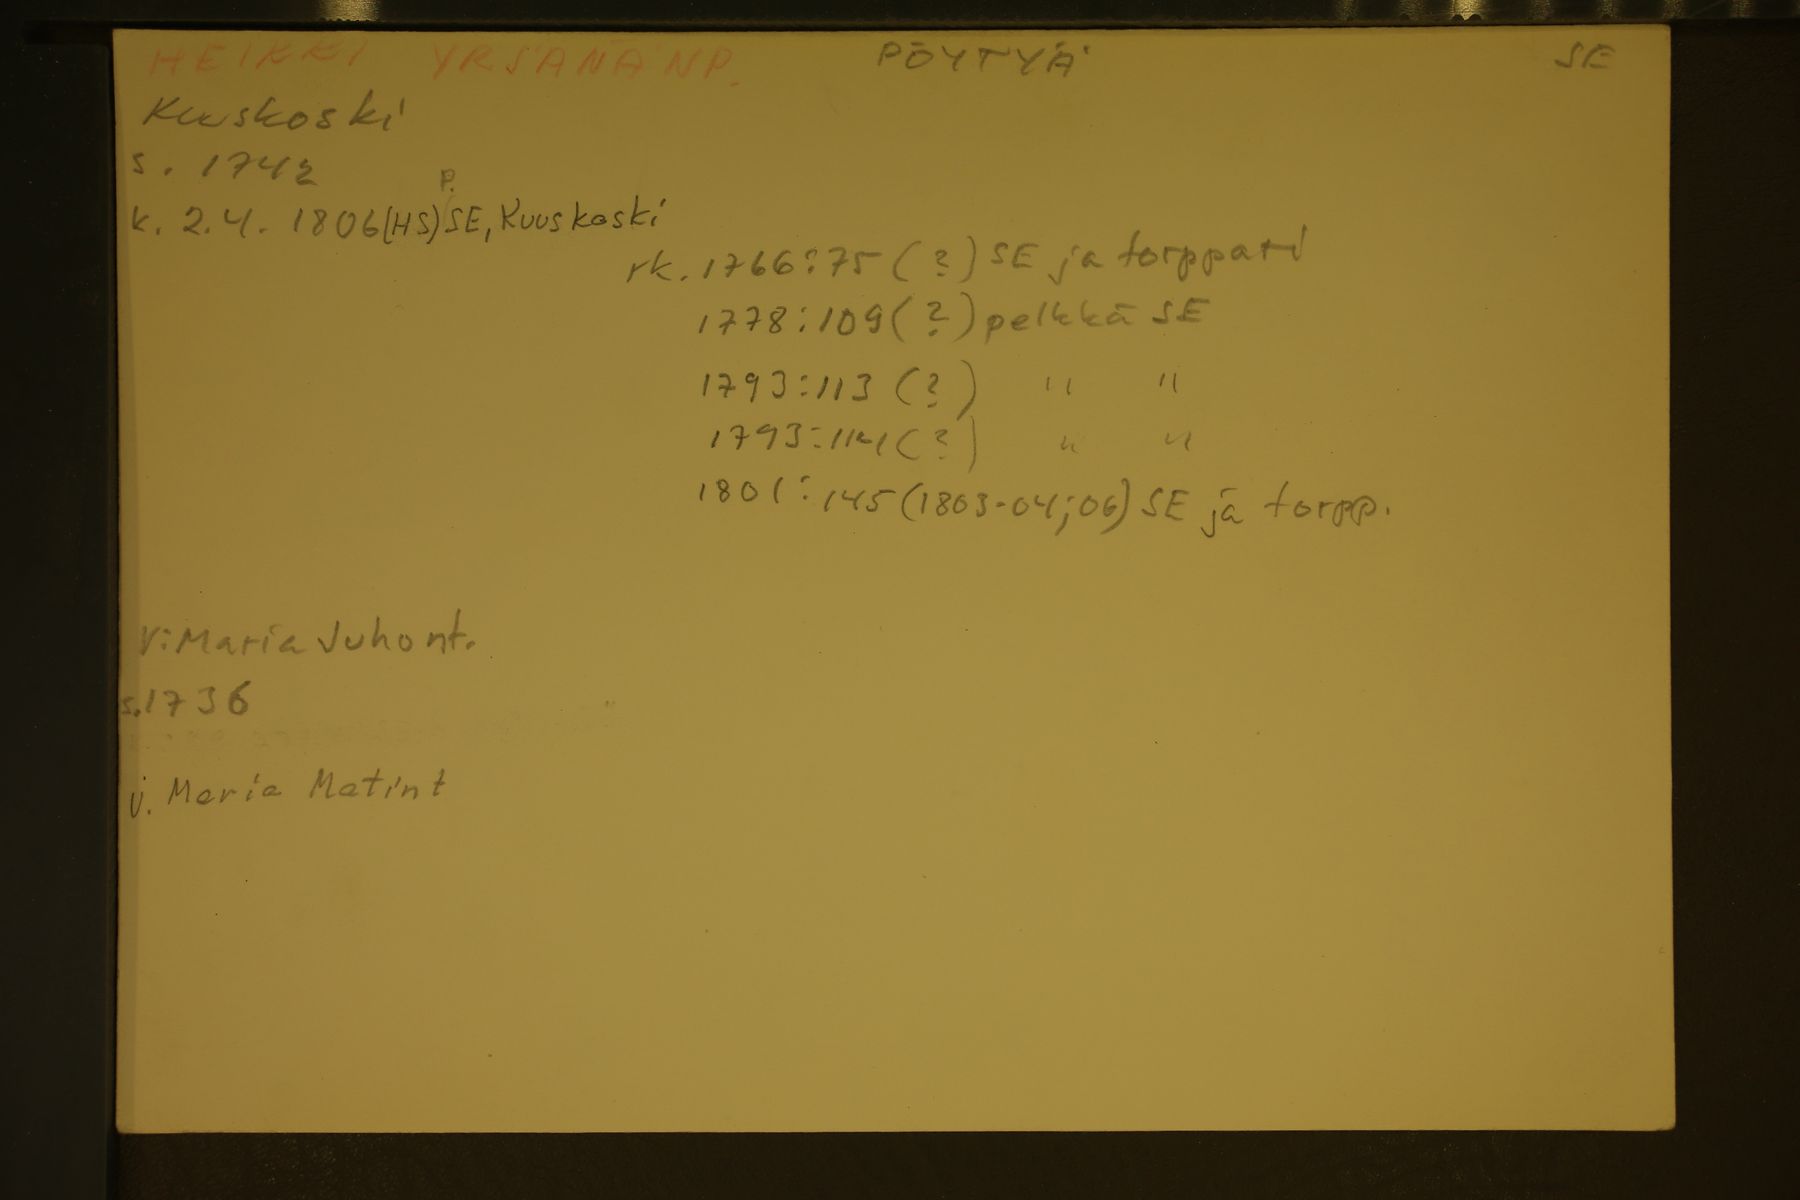 HEIKKI YRJÄNÄNP. PÖYTYÄ SE
Kuuskoski
s. 1742
P.
k. 2.4. 1806(HS)SE, Kuuskoski
rk. 1766:75 (?) SE ja torppari
1778:109 (?) pelkkä SE
1793:113 (?) " "
1793:114 (?) " "
1801:145 (1803-04;06) SE ja torpp.
V: Maria Juhont.
s.1736
v. Maria Matint